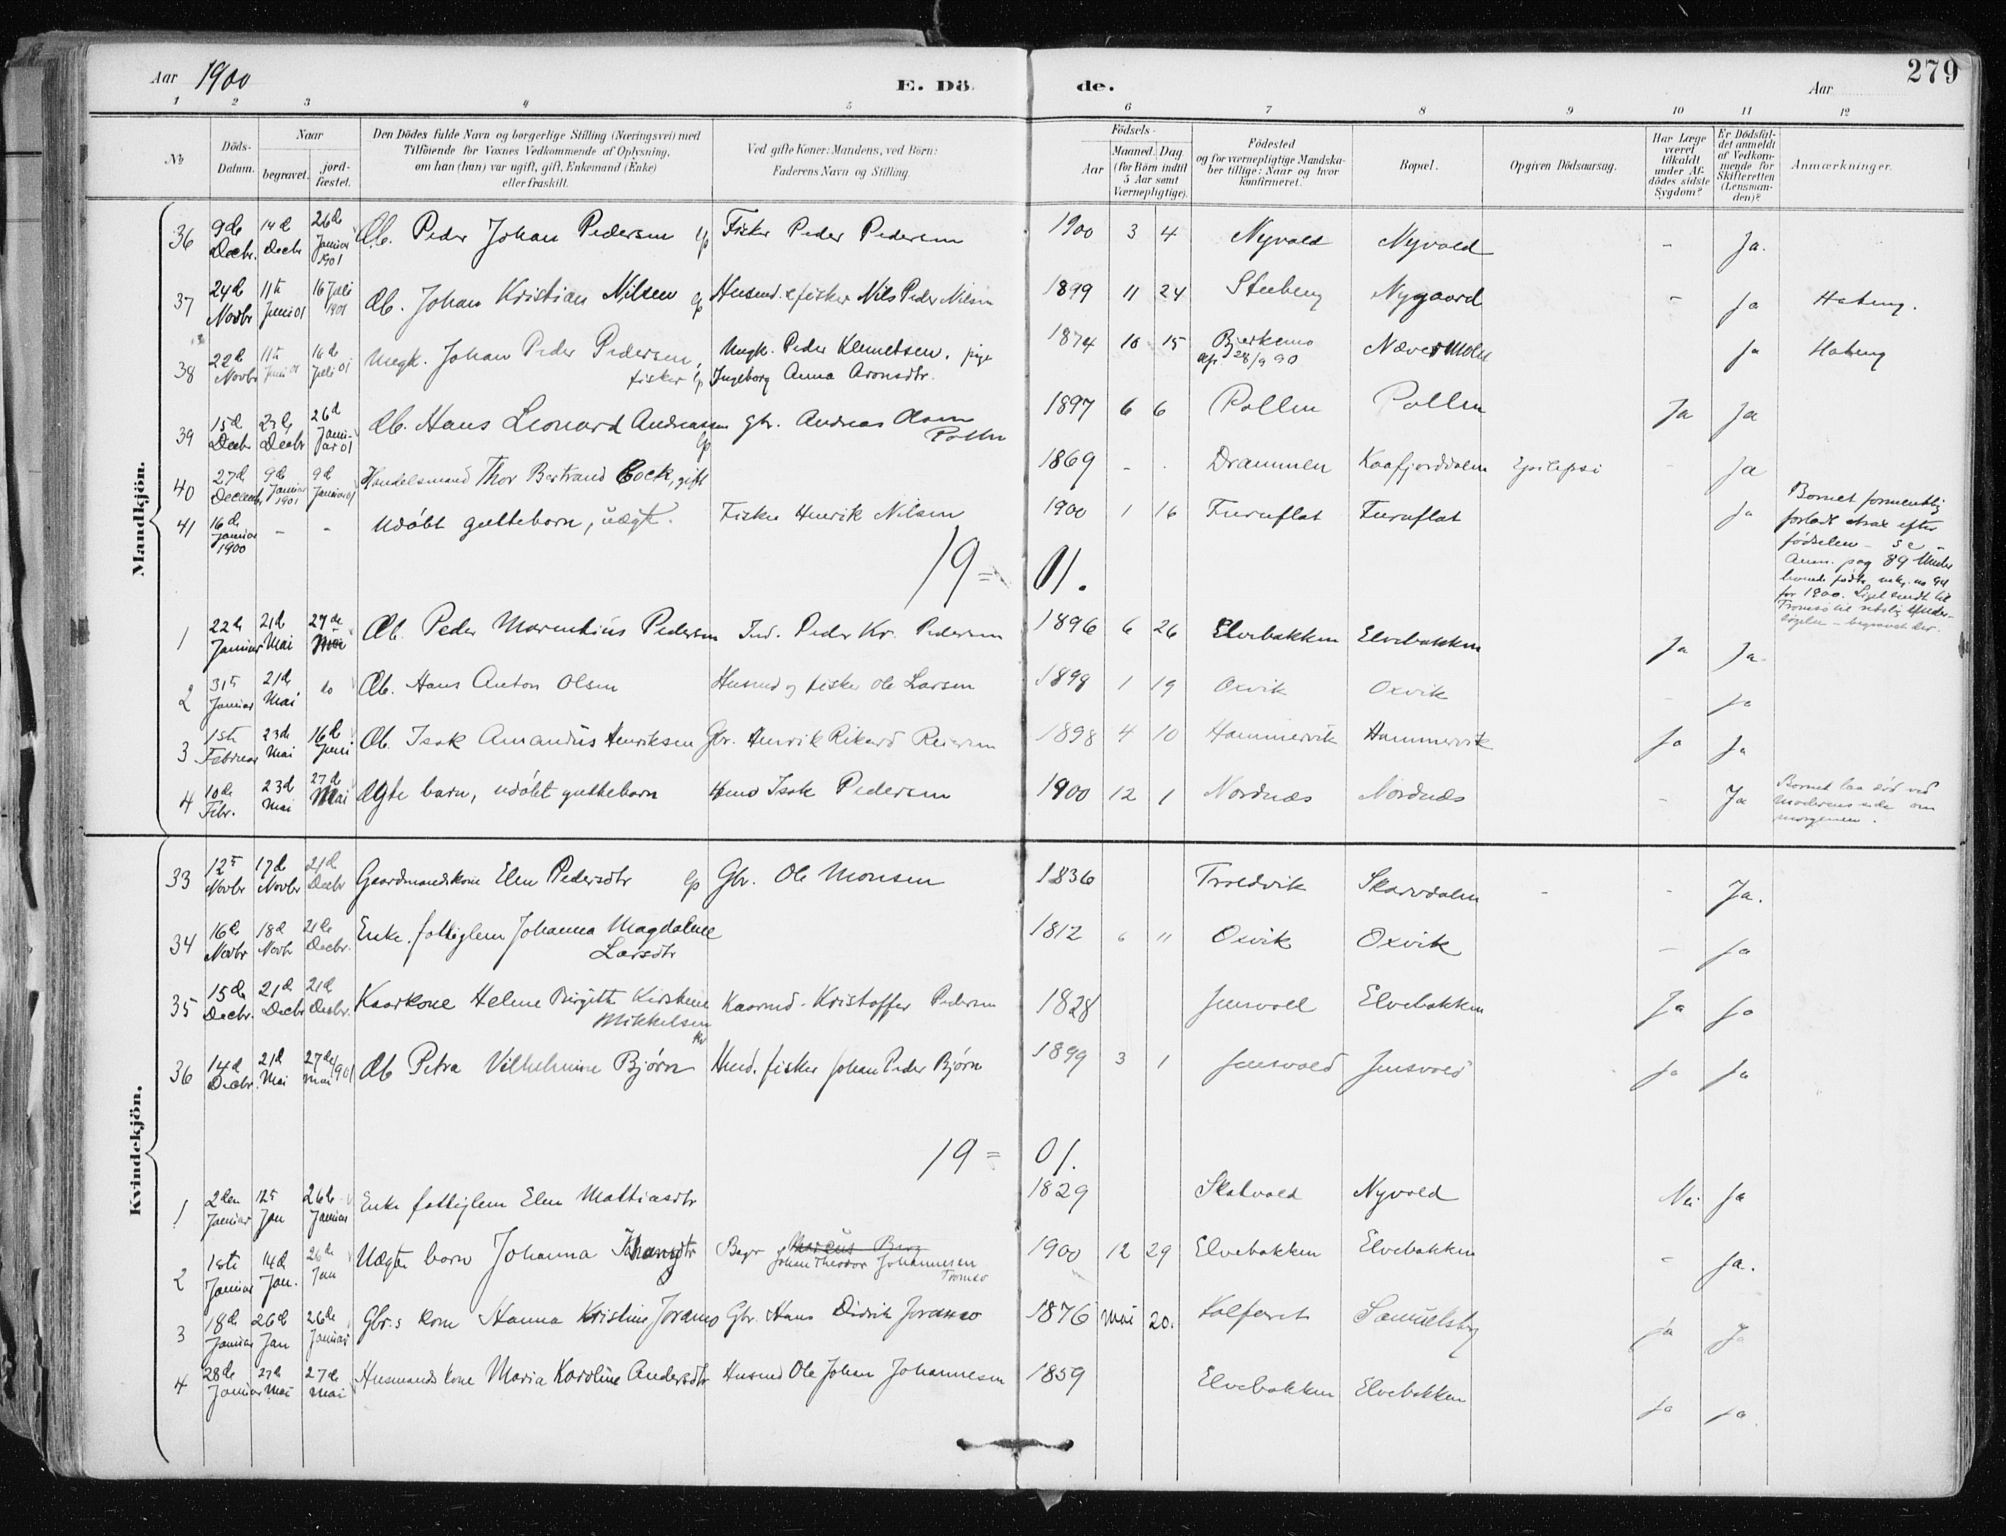 Aar 1900 E. Dö de. Aar 279
1 2 3 4 5 6 7 8 9 10 11 12
No
Döds-
Datum.
Naar
begravet.
jord-
fæstet.
Den Dödes fulde Navn og borgerlige Stilling (Næringsvei) med
Tilföiende for Voxnes Vedkommende af Oplysning,
om han (hun) var ugift, gift, Enkemand (Enke)
eller fraskilt.
Ved gifte Koner: Mandens, ved Börn:
Faderens Navn og Stilling.
Födsels-
Aar
Maaned. Dag
(for Börn indtil
5 Aar samt
Værnepligtige).
Födested
og for værnepligtige Mandska-
ber tillige: Naar og hvor
konfirmeret.
Bopæl.
Opgiven Dödsaarsag.
Har Læge
været
tilkaldt
under Af-
dödes sidste
Sygdom?
Er Dödsfal-
det anmeldt
af Vedkom-
mende for
Skifteretten
(Lensman-
den)?
Anmærkninger.
Mandkjön.
36 9de Decbr. 14d Decbr 26de Januar 1901 Æb. Peder Johan Pedersen Lp Fisker Peder Pedersen 1900 3 4 Nyvold Nyvold - Ja.
37 24d Novbr 11te Juni 01 16 Juli 1901 Æb. Johan Kristian Nilsen Lp Husmd. & fisker Nils Peder Nilsen 1899 11 24 Nygaard - Ja
38 22d Novbr 11te Juni 01 16d Juli 01 Ungk. Johan Peder Pedersen, fisker Lp Ungk. Peder Klemetsen, pige
Ingeborg Anna Aronsdtr. 1874 10 15 28/9 90 Ja
39 15d Decbr 23de Decbr 26d Januar 01 Æb. Hans Leonard Andreassen Lp Gbr. Andreas Olsen
Pollen 1897 6 6 Pollen Pollen Ja Ja
40 27d December 9de Januar 1901 9d Januar 01 Handelsmand Thor Bertrand Cock, gift 1869 - - Drammen Kaafjorddalen Epilepsi - Ja
41 16de Januar 1900 - - Udöbt guttebarn, uægt. Fisker Henrik Nilsen 1900 1 16 Furuflat Furuflat Ja
Barnet formentlig
forladt strax efter
födselen - se
Anm. pag 89 Under
for 1900. Liget sendt til
Tromsö
begravet der.
19 = 01.
1 22de Januar 21d Mai 27de Mai Æb. Peder Marentius Pedersen Ind. Peder Kr. Pedersen 1896 6 26 Elvebakken Elvebakken Ja Ja.
2 31te Januar 21de Mai do Æb. Hans Anton Olsen Husmd og fisker Ole Larsen 1899 1 19 Oxvik Oxvik - Ja
3 1ste Februar 23d Mai 16de Juni Æb. Isak Amandus Henriksen Gbr. Henrik Rikard Reiersen 1898 4 10 Hammervik Hammervik Ja Ja
4 10de Febr. 23d Mai 27d Mai Ægte barn, udöbt guttebarn Isak Pedersen 1900 12 1 Nordnæs Nordnæs - Ja
Barnet laa död ved
Moderens side om
morgenen.
Kvindekjön.
33 12te Novbr 17d Novbr 21d Decbr Gaardmandskone Elen Pedersdtr Lp Gbr. Ole Monsen 1836 Troldvik Skarvdalen - - Ja.
34 16de Novbr 18d Novbr 21de Decbr. Enke, fattiglem Johanna Magdalene
Larsdtr 1812 " " Oxvik Oxvik - Ja
35 15de Decbr. 21d Decbr 21d Decbr. Kaarkone Helene Birgitte Kirstine
Mikkelsen Kaarmd. Kristoffer Pedersen 1828 Jensvoll Elvebakken Ja Ja
36 14d Decbr. 21d Mai 27de mai 1901 Æb Petra Vilhelmine Björn Husmd. fisker Johan Peder Björn 1899 3 1 Jensvold Jensvold Ja Ja
19 = 01.
1 2den Januar 12te Jan 26de Januar Enke fattiglem Elen Mathiasdtr 1829 Skatvold Nyvold Nei Ja
2 1ste Januar 14d Jan. 26de Jan Uægte barn Johanna Johansdtr Marcus Berg
Johan Theodor Johannesen
Tromsö 1900 12 29 Elvebakken Elvebakken - Ja.
3 18d Januar 26d Jan 26de Januar Gbr.s kone Hanna Kristine Joramo Gbr. Hans Didrik Joramo 1876 Mai 20. Kolfaret Samuelsby Ja Ja
4 28de Januar 27d Mai 27de mai Husmandskone Maria Karoline Andersdtr Husmd Ole Johan Johannesen 1859 Elvebakken Elvebakken Ja Ja.